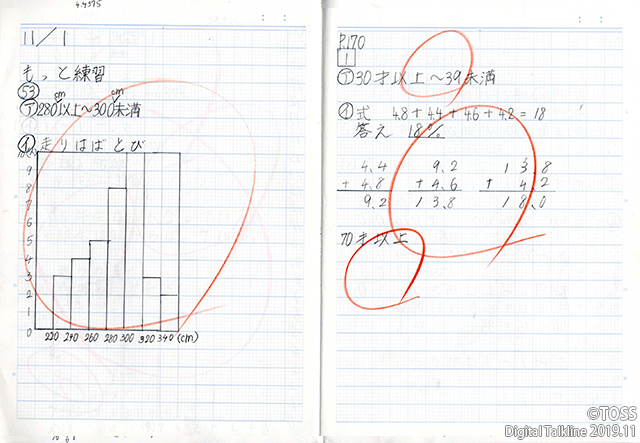 4.4375
11/1
もっと練習
53
ア 280cm以上〜300cm未満
イ 走りはばとび
10(人)
9
8
7
6
5
4
3
2
1
0
220 240 260 280 300 320 340 (cm)
P.170
1
ア 30才以上〜39未満
イ 式 4.8+4.4+4.6+4.2=18
答え 18%
4.4 9.2 13.8
+4.8 +4.6 +4.2
9.2 13.8 18.0
70才以上
©TOSS
Digital Talkline 2019.11